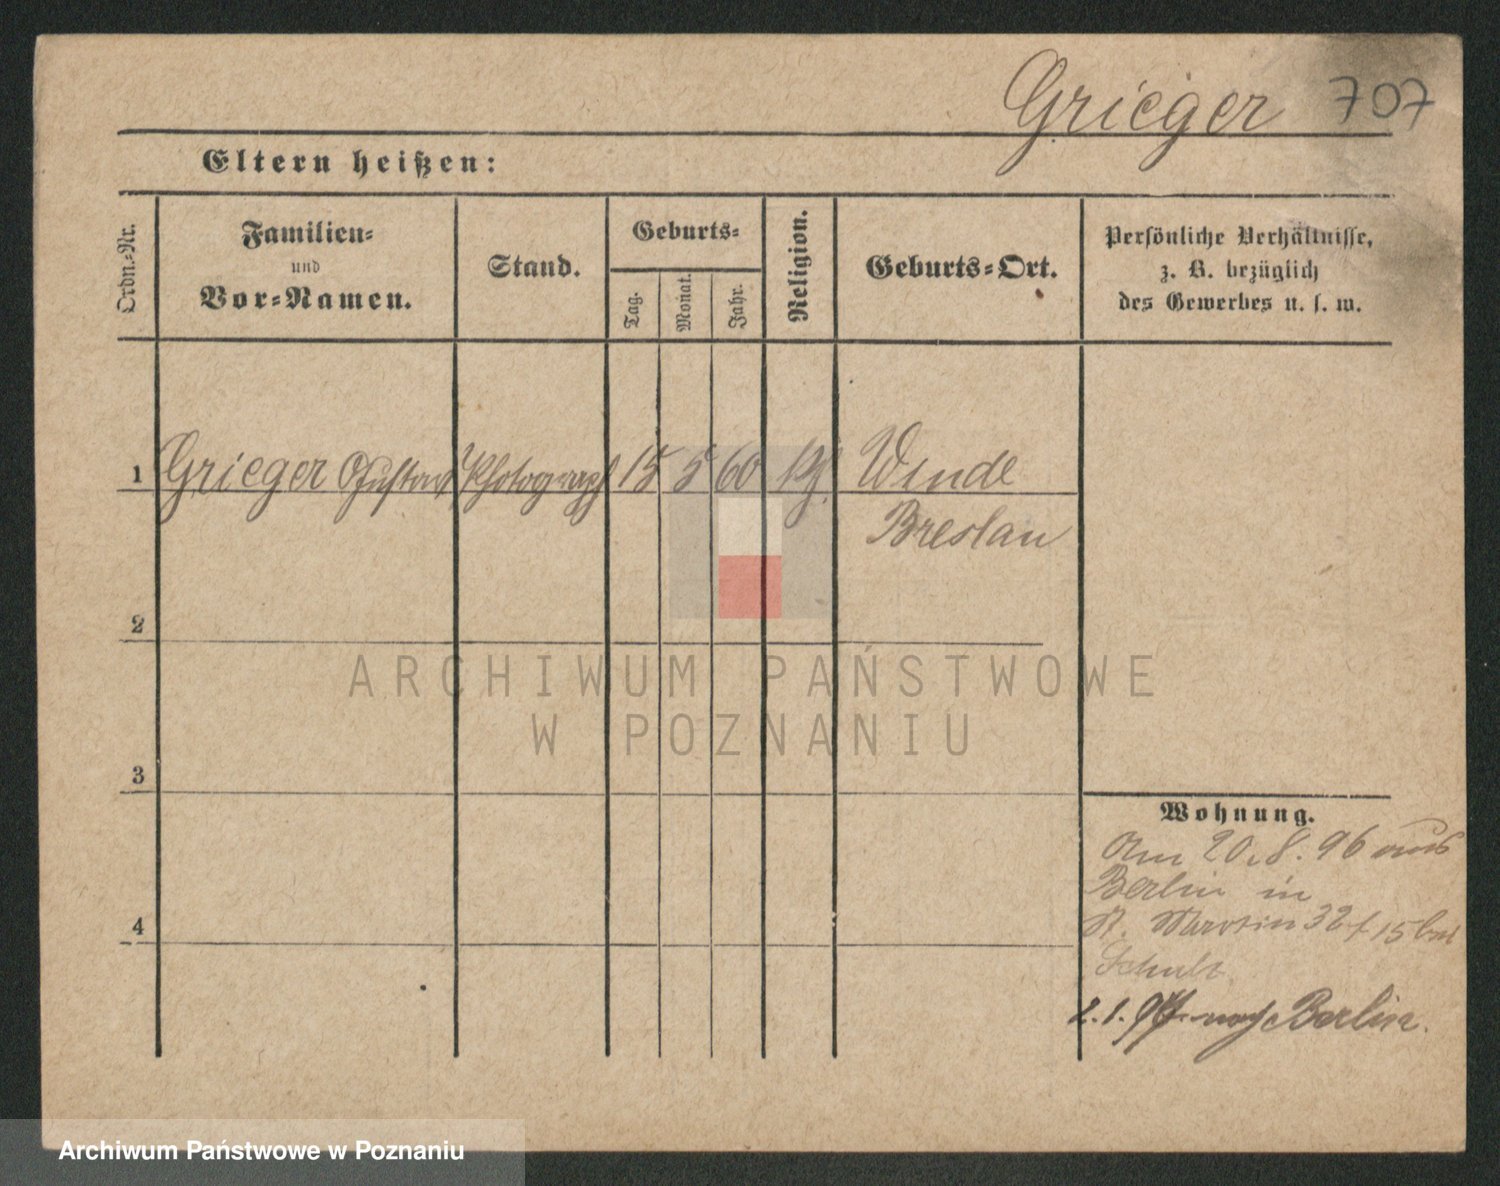 Grieger 707
Eltern heißen:
Ordn.-Nr.
Familien-
und
Vor-Namen.
Stand.
Geburts-
Tag.
Monat.
Jahr.
Religion.
Geburts-Ort.
Persönliche Verhältnisse,
z. B. bezüglich
des Gewerbes u. s. w.
1 Grieger Gustav Photograph 15 5 60 Winde
Breslau
2
3
4
Wohnung.
Am 20.8.96 aus
Berlin in
St. Martin 32 15 bei
Schulz
2.1.97 nach Berlin.
ARCHIWUM PAŃSTWOWE
W POZNANIU
Archiwum Państwowe w Poznaniu